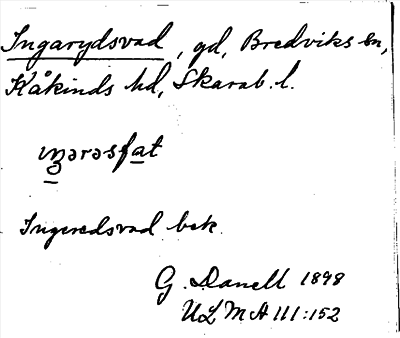 Ingarydsvad, gd, Bredviks sn,
Kåkinds hd, Skarab. l.
ɪŋərəsfat
Ingeredsvad bek.
G. Danell 1898
ULMA 111:152